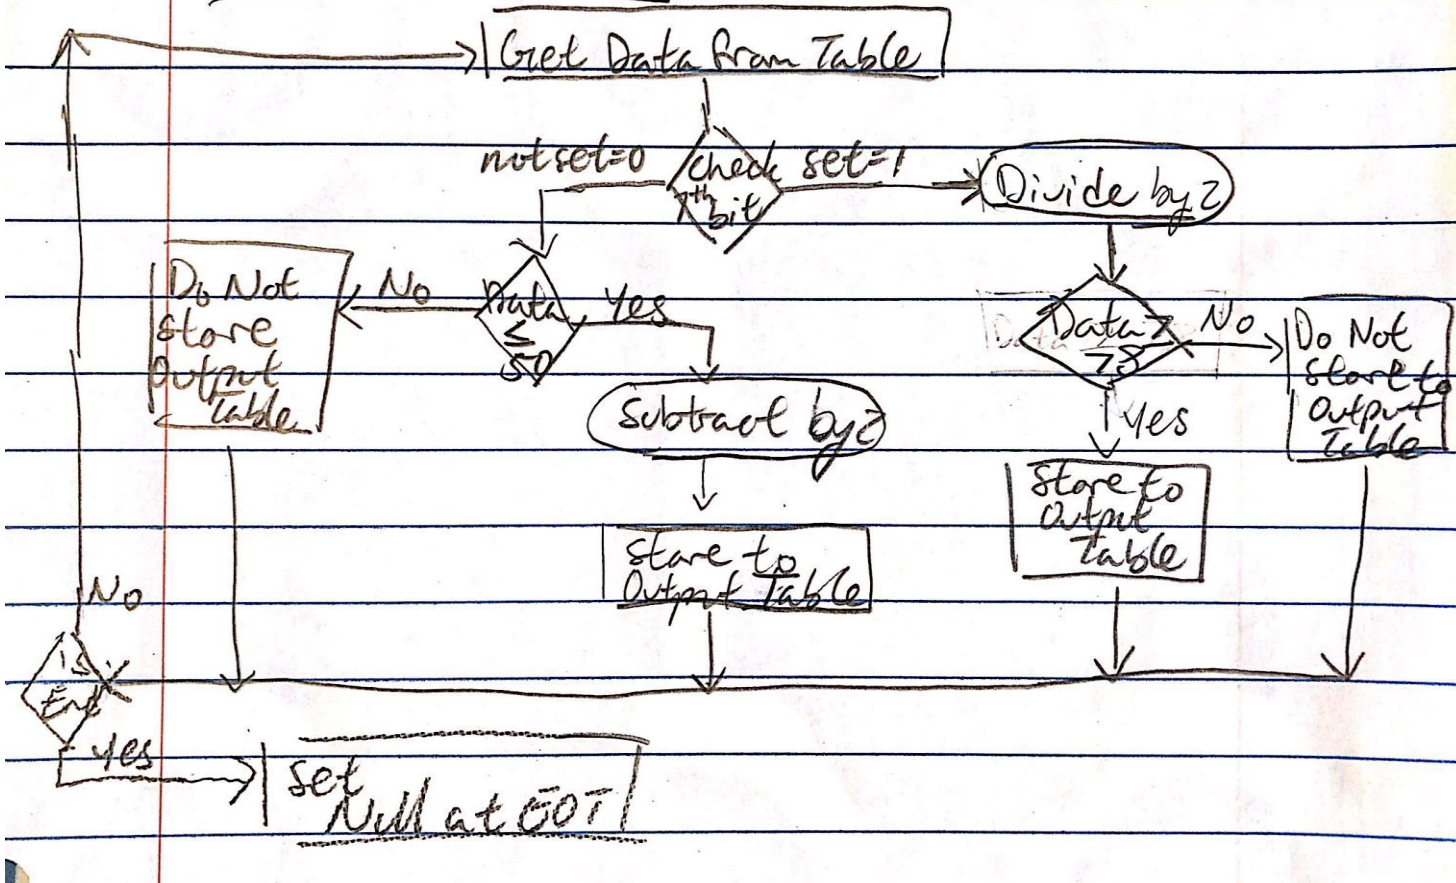 Get Data from Table
not set=0
check
7th bit
set=1
Divide by 2
Do Not
store
Output
Table
No
Data
≤
50
Yes
Data >
78
No
Do Not
store to
Output
Table
subtract by 2
Yes
store to
Output
Table
store to
Output Table
No
is
End
Yes
set
Null at EOT